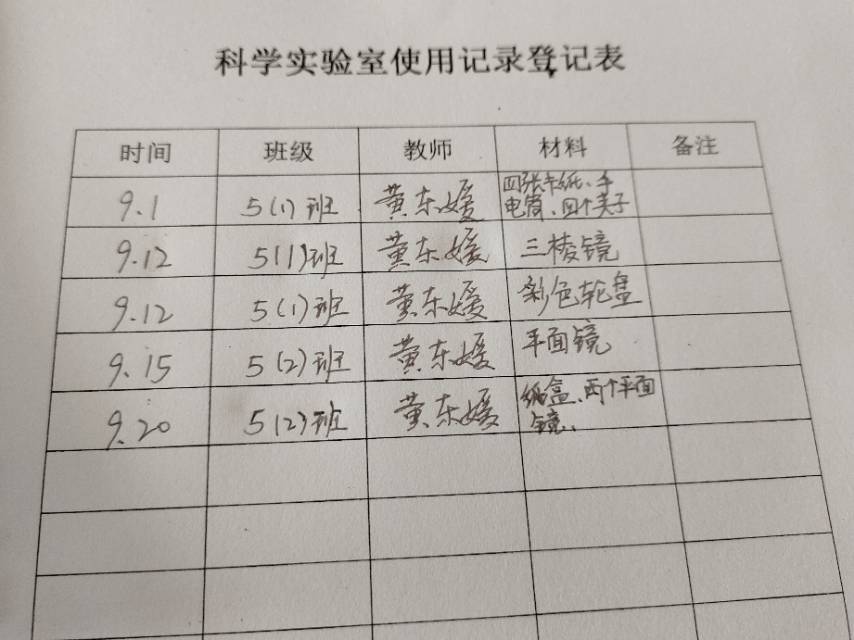 科学实验室使用记录登记表
时间 班级 教师 材料 备注
9.1 5(1)班 黄东媛 四张卡纸、手
电筒、四个夹子
9.12 5(1)班 黄东媛 三棱镜
9.12 5(1)班 黄东媛 彩色轮盘
9.15 5(2)班 黄东媛 平面镜
9.20 5(2)班 黄东媛 纸盒、两个平面
镜、